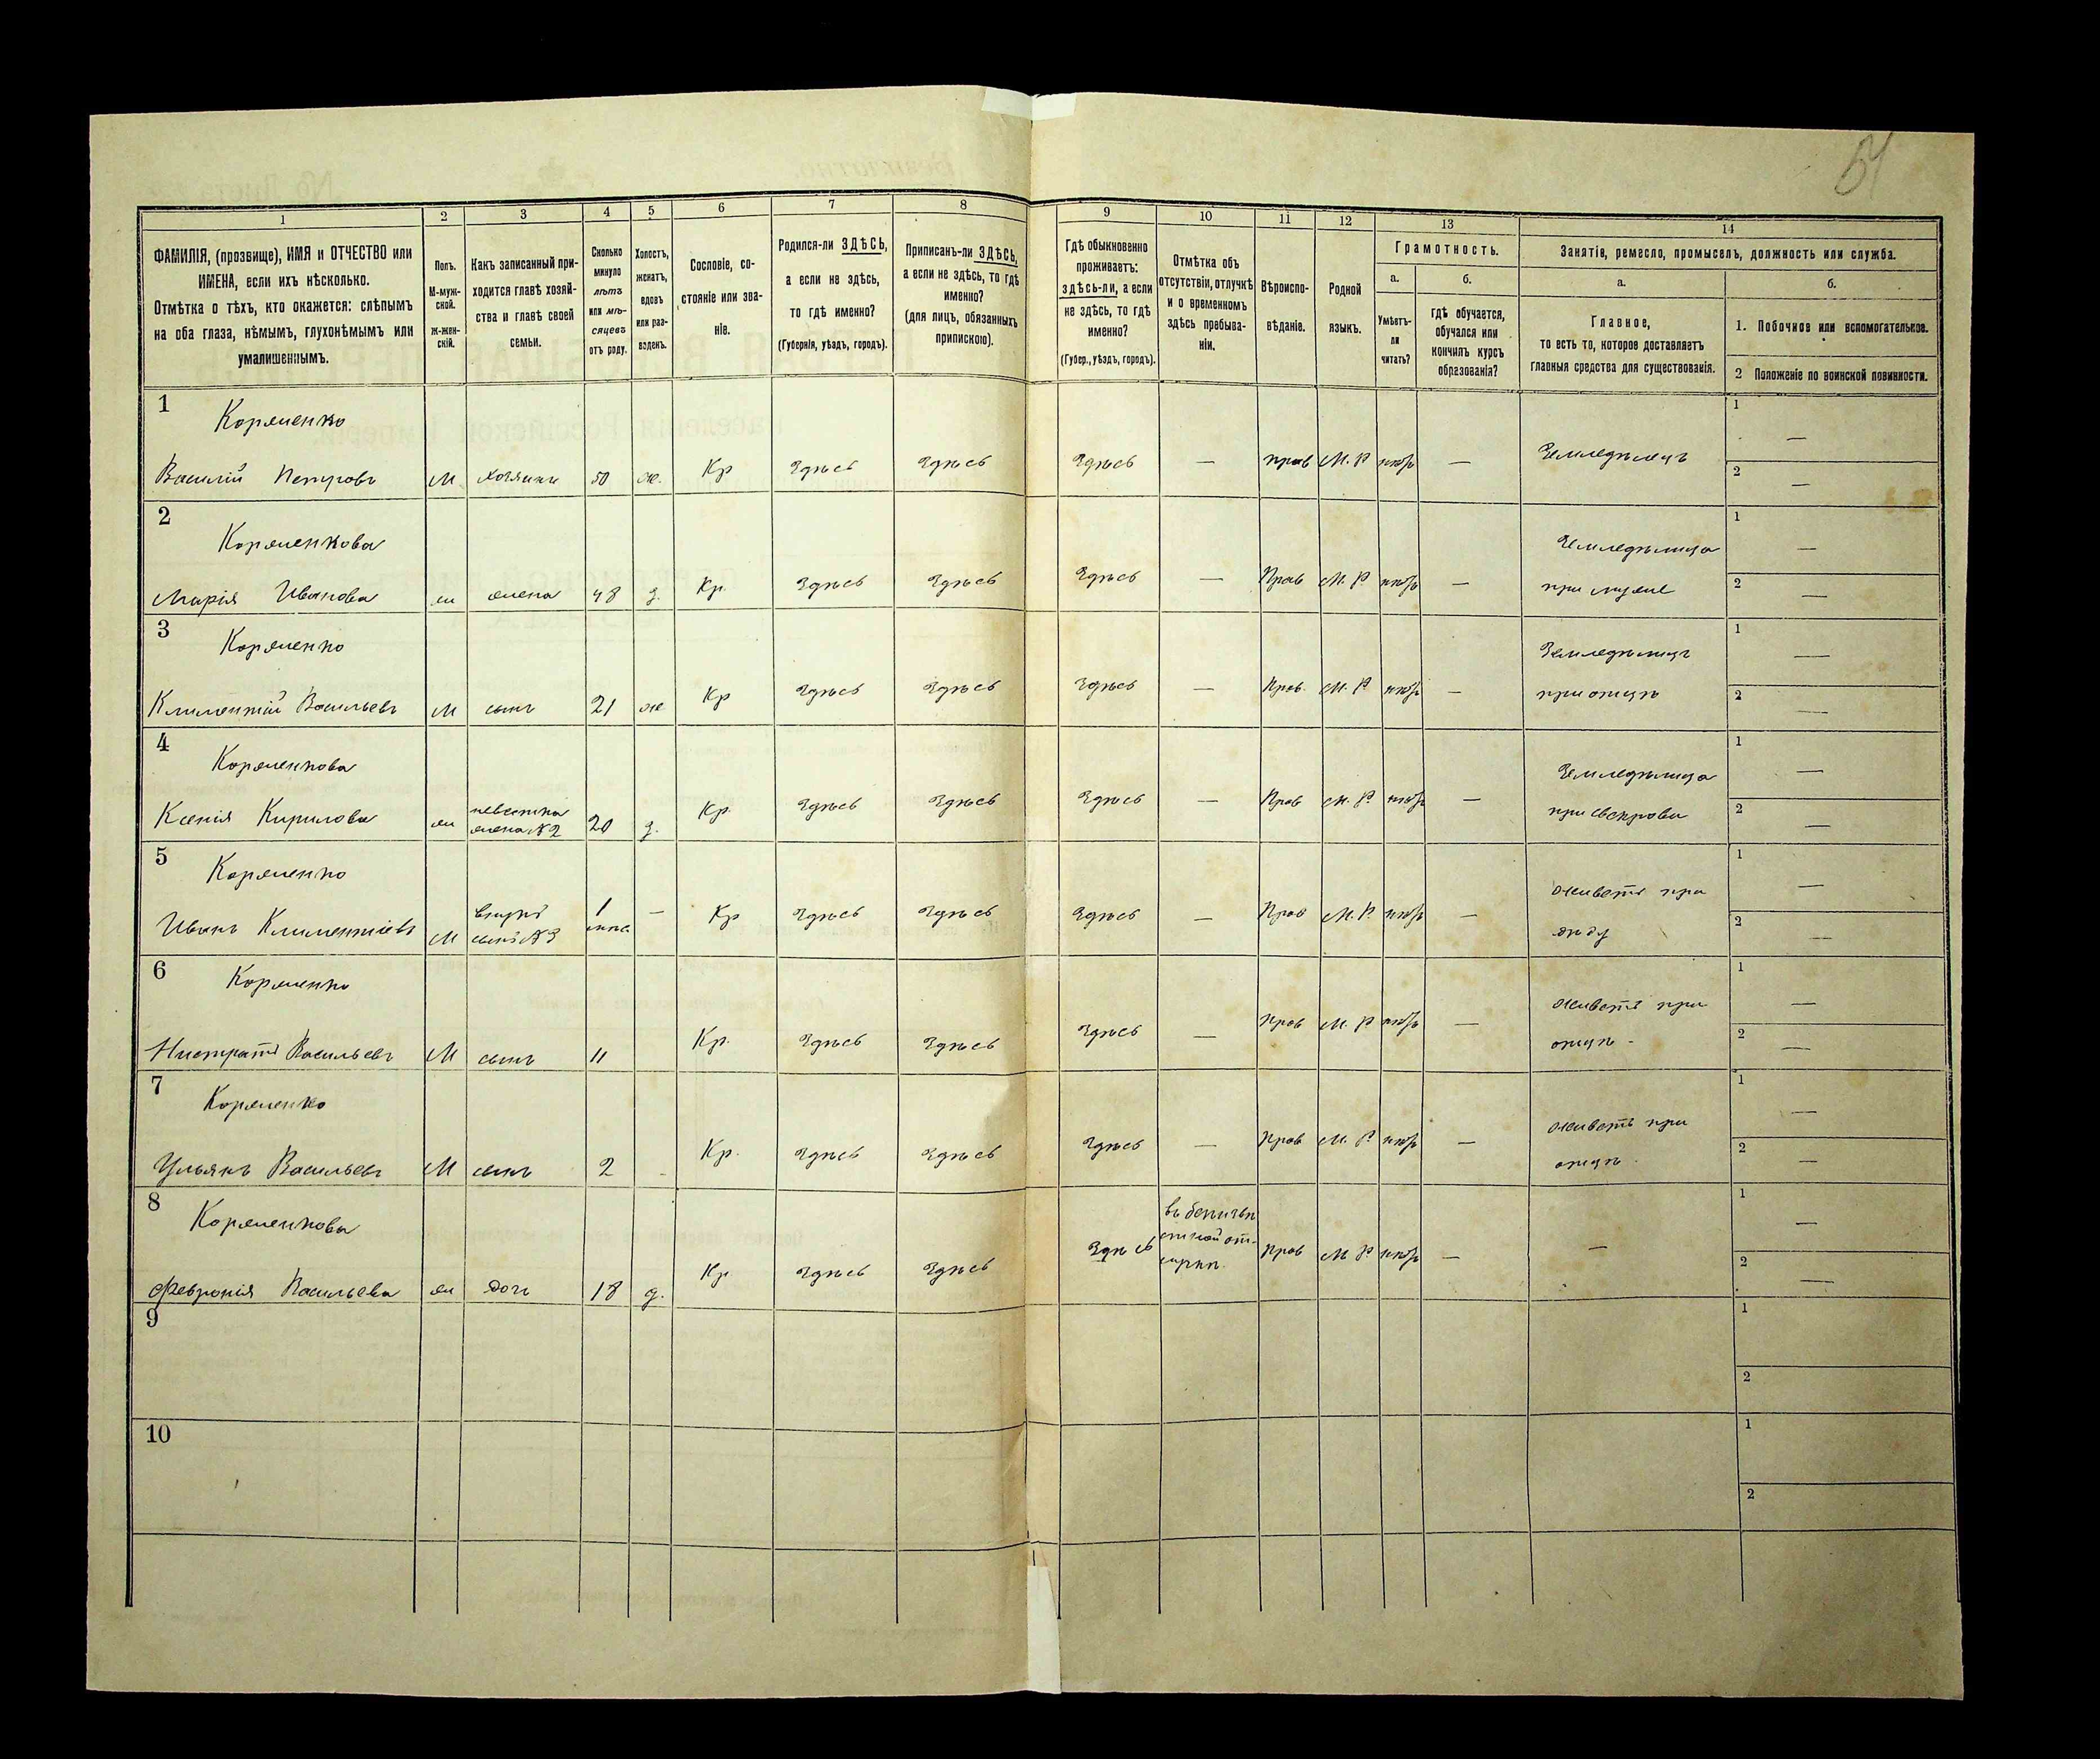 54
1 2 3 4 5 6 7 8 9 10 11 12 13 14
ФАМИЛІЯ, (прозвище), ИМЯ и ОТЧЕСТВО или
ИМЕНА, если ихъ нѣсколько.
Отмѣтка о тѣхъ, кто окажется: слѣпымъ
на оба глаза, нѣмымъ, глухонѣмымъ или
умалишеннымъ.
Полъ.
М-муж-
ской.
Ж-жен-
скій.
Какъ записанный при-
ходится главѣ хозяй-
ства и главѣ своей
семьи.
Сколько
минуло
лѣтъ
или мѣ-
сяцевъ
отъ роду.
Холостъ,
женатъ,
вдовъ
или раз-
веденъ.
Сословіе, со-
стояніе или зва-
ніе.
Родился-ли ЗДѢСЬ,
а если не здѣсь,
то гдѣ именно?
(Губернія, уѣздъ, городъ).
Приписанъ-ли ЗДѢСЬ,
а если не здѣсь, то гдѣ
именно?
(для лицъ, обязанныхъ
припискою).
Гдѣ обыкновенно
проживаетъ:
здѣсь-ли, а если
не здѣсь, то гдѣ
именно?
(Губер., уѣздъ, городъ).
Отмѣтка объ
отсутствіи, отлучкѣ
и о временномъ
здѣсь пребыва-
ніи.
Вѣроиспо-
вѣданіе.
Родной
языкъ.
Грамотность.
а.
Умѣетъ-
ли
читать?
б.
гдѣ обучается,
обучался или
кончилъ курсъ
образованія?
Занятіе, ремесло, промыселъ, должность или служба.
а.
Главное,
то есть то, которое доставляетъ
главныя средства для существованія.
б.
1. Побочное или вспомогательное.
2 Положеніе по воинской повинности.
1
Корженко
Василій Петровъ М хозяинъ 50 ж. Кр Здѣсь Здѣсь Здѣсь — прав М. Р — Земледѣлецъ
1 —
2 —
2
Корженкова
Марія Иванова ж жена 48 з. Кр. Здѣсь Здѣсь Здѣсь — Прав М. Р — Земледѣлица
при мужѣ
1 —
2 —
3
Корженко
Климентій Васильевъ М сынъ 21 ж Кр Здѣсь Здѣсь Здѣсь — Прав. М. Р — Земледѣлецъ
при отцѣ
1 —
2 —
4
Корженкова
Ксенія Кирилова ж невѣстка
жена №2 20 з. Кр. Здѣсь Здѣсь Здѣсь — Прав М. Р — Земледѣлица
при свекрови
1 —
2 —
5
Корженко
Иванъ Климентіевъ М внукъ
сынъ №3 1 — Кр Здѣсь Здѣсь Здѣсь — Прав М. Р — живетъ при
дѣду
1 —
2 —
6
Корженко
Васильевъ М сынъ 11 Кр. Здѣсь Здѣсь Здѣсь — Прав М. Р — живетъ при
отцѣ
1 —
2 —
7
Корженко
Ульянъ Васильевъ М сынъ 2 - Кр. Здѣсь Здѣсь Здѣсь — Прав М. Р — живетъ при
отцѣ
1 —
2 —
8
Корженкова
Февронія Васильева ж дочь 18 д. Кр Здѣсь Здѣсь Здѣсь прав М Р — —
1 —
2 —
9
1
2
10
1
2